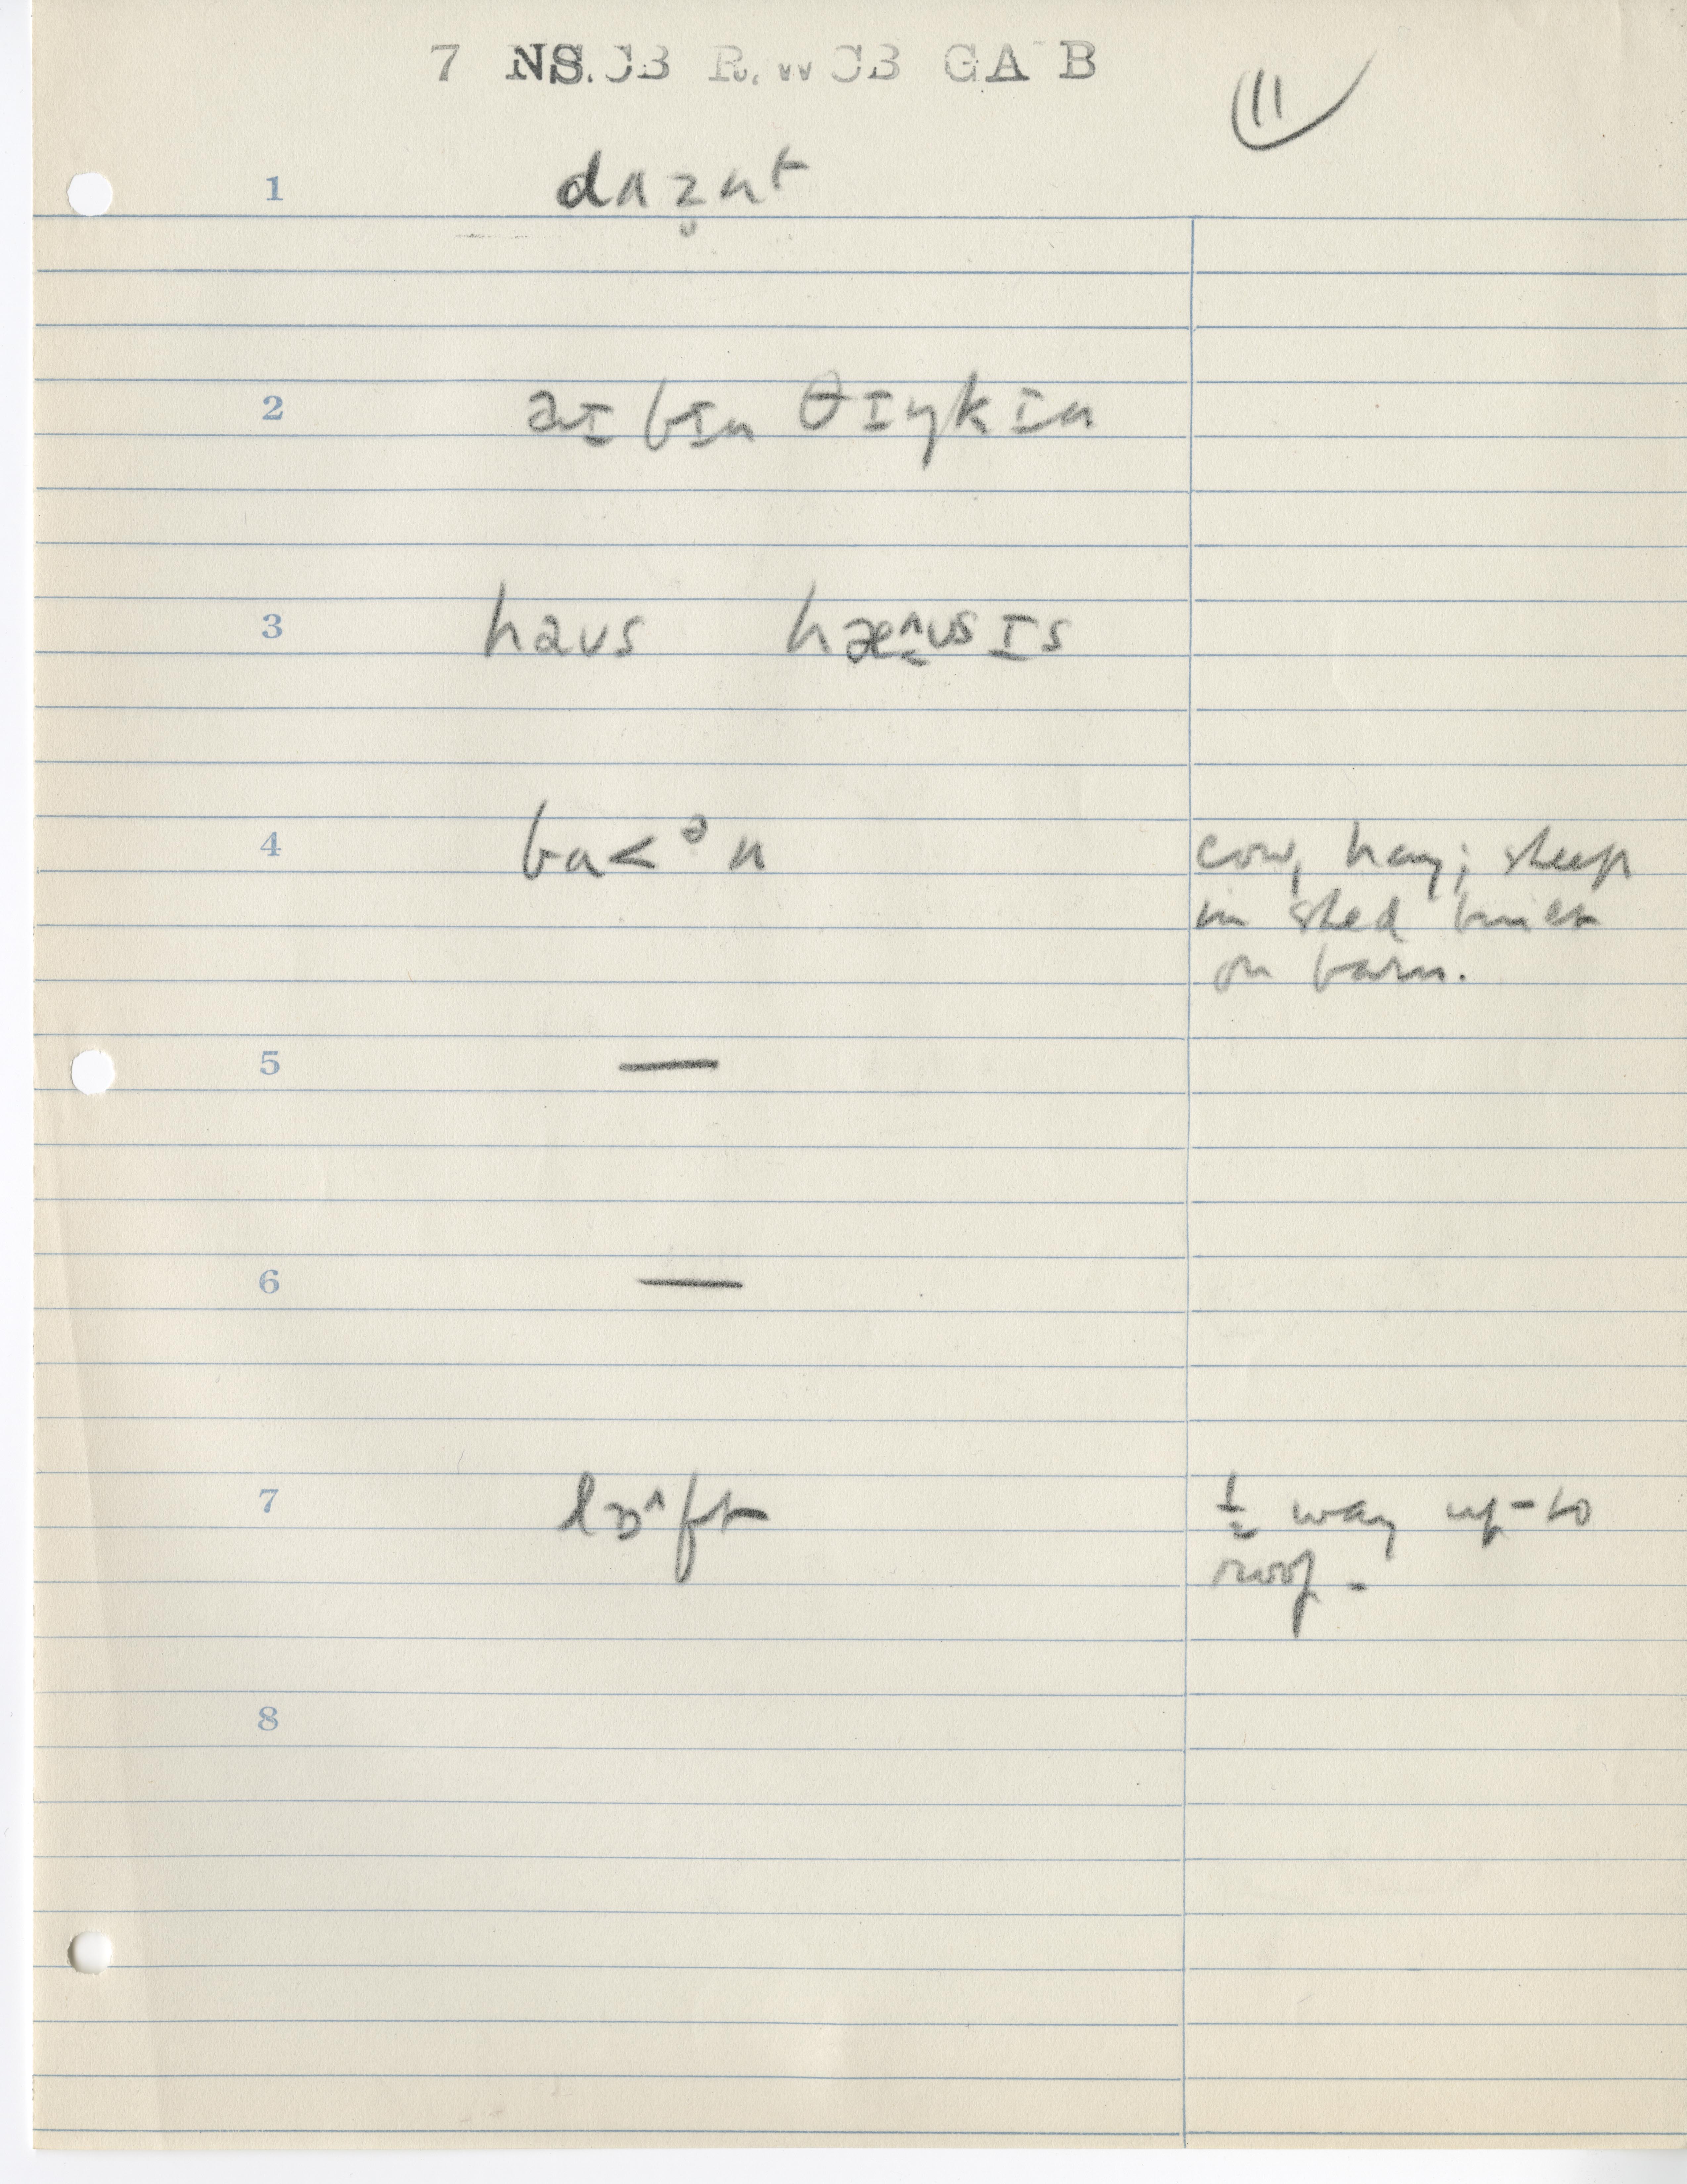 7 NS.CB R.W CB GA B
11
1 dʌz̥nt
2 əɪ bɪn θɪŋkɪn
3 həʊs hæ˄ʊsɪs
4 ba<ᵊn cow, hay; sheep
in shed
on barn.
5 —
6 —
7 lɒ^ft ½ way up to
roof.
8